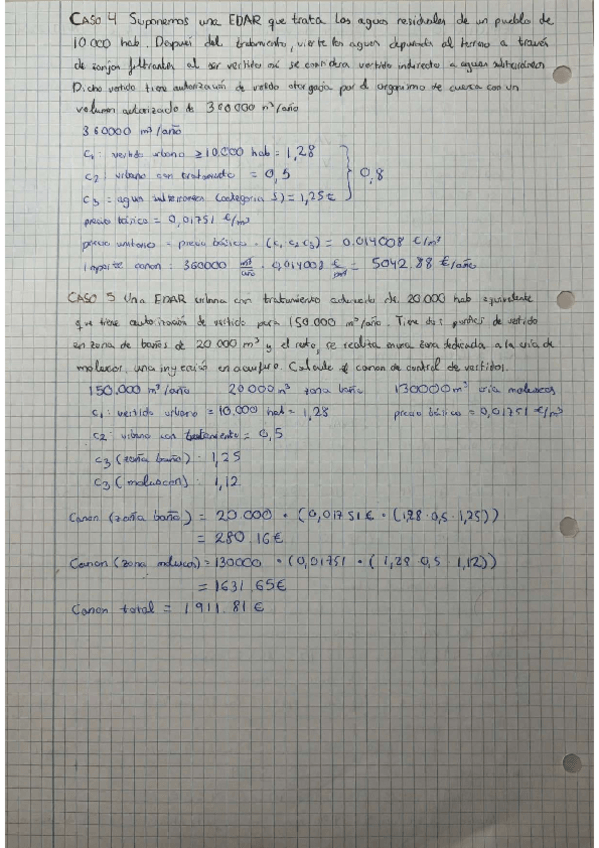 CASO 4 Suponemos una EDAR que trata las aguas residuales de un pueblo de
10.000 hab. Después del tratamiento, vierte las aguas depuradas al terreno a través
de zanjas filtrantes al ser vertido así se considera vertido indirecto a aguas subterráneas
Dicho vertido tiene autorización de vertido otorgada por el organismo de cuenca con un
volumen autorizado de 360000 m³/año
360000 m³/año
C₁: vertido urbano ≥10.000 hab = 1,28
C₂: urbano con tratamiento = 0,5
C₃ = agua subterránea (categoría S) = 1,25€
0,8
precio básico = 0,01751 €/m³
precio unitario = precio básico · (C₁ C₂ C₃) = 0.014008 €/m³
Importe canon: 360000 m³/año · 0,014008 €/m³ = 5042.88 €/año
CASO 5 Una EDAR urbana con tratamiento adecuado de 20.000 hab equivalente
que tiene autorización de vertido para 150.000 m³/año. Tiene dos puntos de vertido
en zona de baños de 20 000 m³ y el resto, se realiza en una zona dedicada a la cría de
moluscos, una inyección en acuífero. Calcule el canon de control de vertidos.
150.000 m³/año 20000 m³ zona baño 130000 m³ cría moluscos
C₁: vertido urbano = 10.000 hab = 1,28 precio básico = 0,01751 €/m³
C₂: urbano con tratamiento = 0,5
C₃ (zona baño): 1,25
C₃ (moluscos): 1,12
Canon (zona baño) = 20 000 · (0,01751€ · (1,28 · 0,5 · 1,25))
= 280.16€
Canon (zona moluscos) = 130000 · (0,01751 · (1,28 0,5 1,12))
= 1631.65€
Canon total = 1911.81€